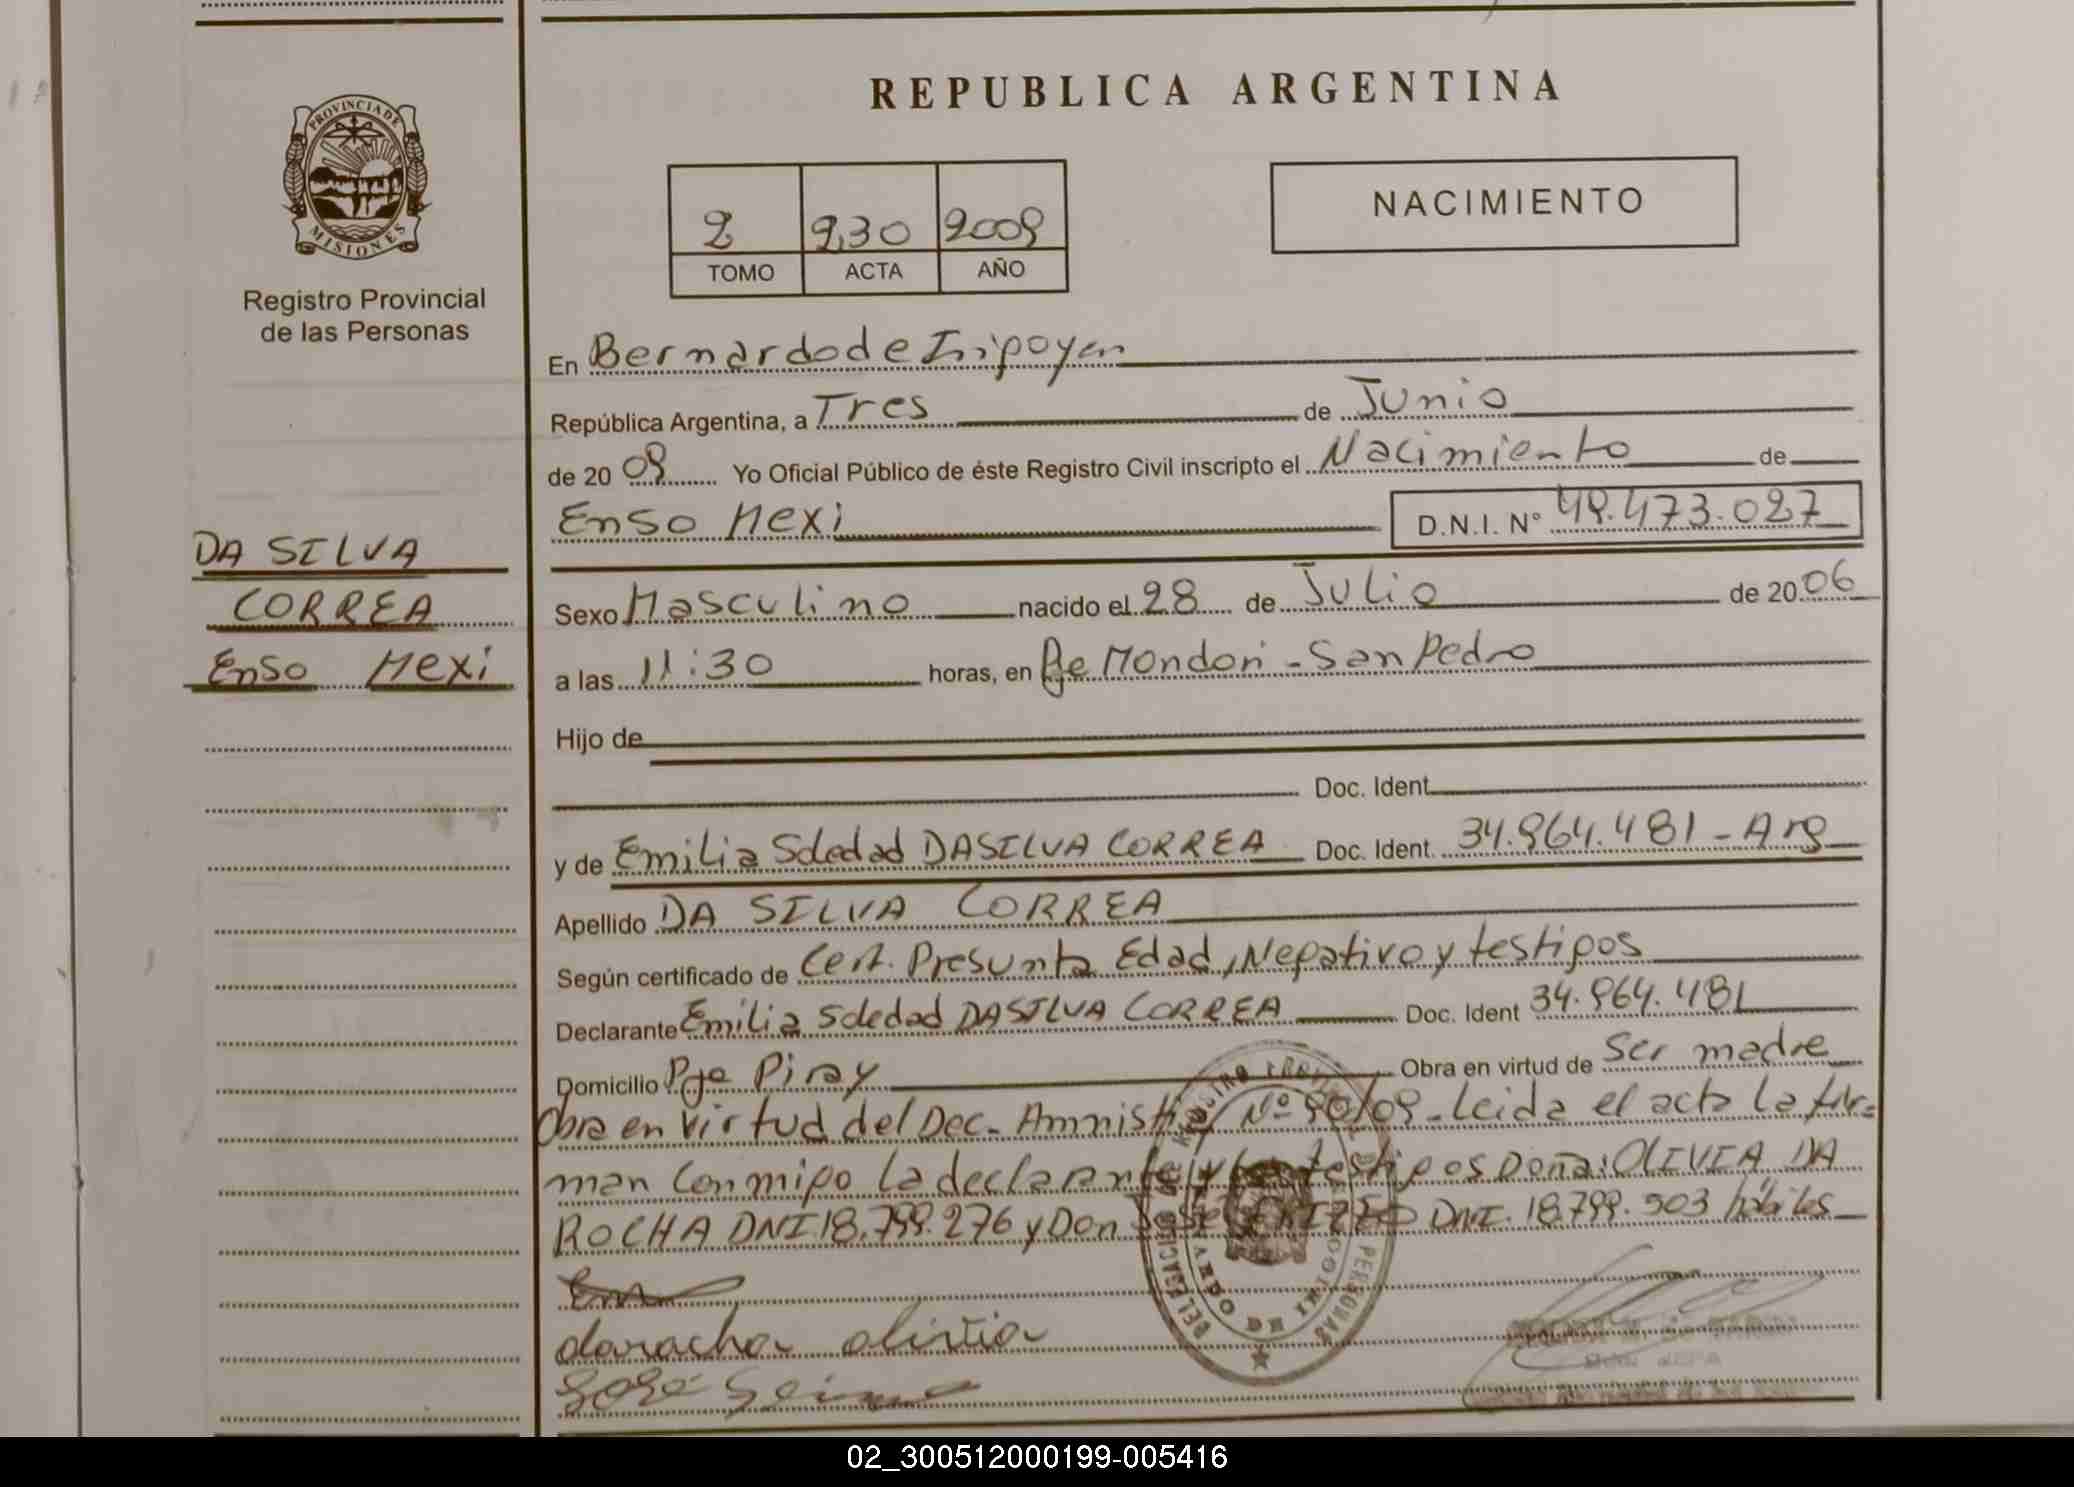 PROVINCIA DE
MISIONES
Registro Provincial
de las Personas
DA SILVA
CORREA
Enso Mexi
REPUBLICA ARGENTINA
2 230 2009
TOMO ACTA AÑO
NACIMIENTO
En Bernardo de Irigoyen
República Argentina, a Tres de Junio
de 20 09 Yo Oficial Público de éste Registro Civil inscripto el Nacimiento de
Enso Mexi D.N.I. N° 49.473.027
Sexo Masculino nacido el 28 de Julio de 20 06
a las 11:30 horas, en Pje Mondori - San Pedro
Hijo de
Doc. Ident
y de Emilia Soledad DA SILVA CORREA Doc. Ident. 34.964.481 - Arg
Apellido DA SILVA CORREA
Según certificado de Cert. Presunta Edad, Negativo y testigos
Declarante Emilia Soledad DA SILVA CORREA Doc. Ident 34.964.481
Domicilio Pje Piray Obra en virtud de Ser madre
Obra en Virtud del Dec. Amnistia Nº 90/09 - Leida el acta la fir=
man conmigo la declarante y los testigos Doña: OLIVIA DA
ROCHA DNI 18.799.276 y Don José DNI. 18.799.503 hábiles
darocha olivia
José
DELEGACION DE REGISTRO PROVINCIAL DE PERSONAS
02_300512000199-005416